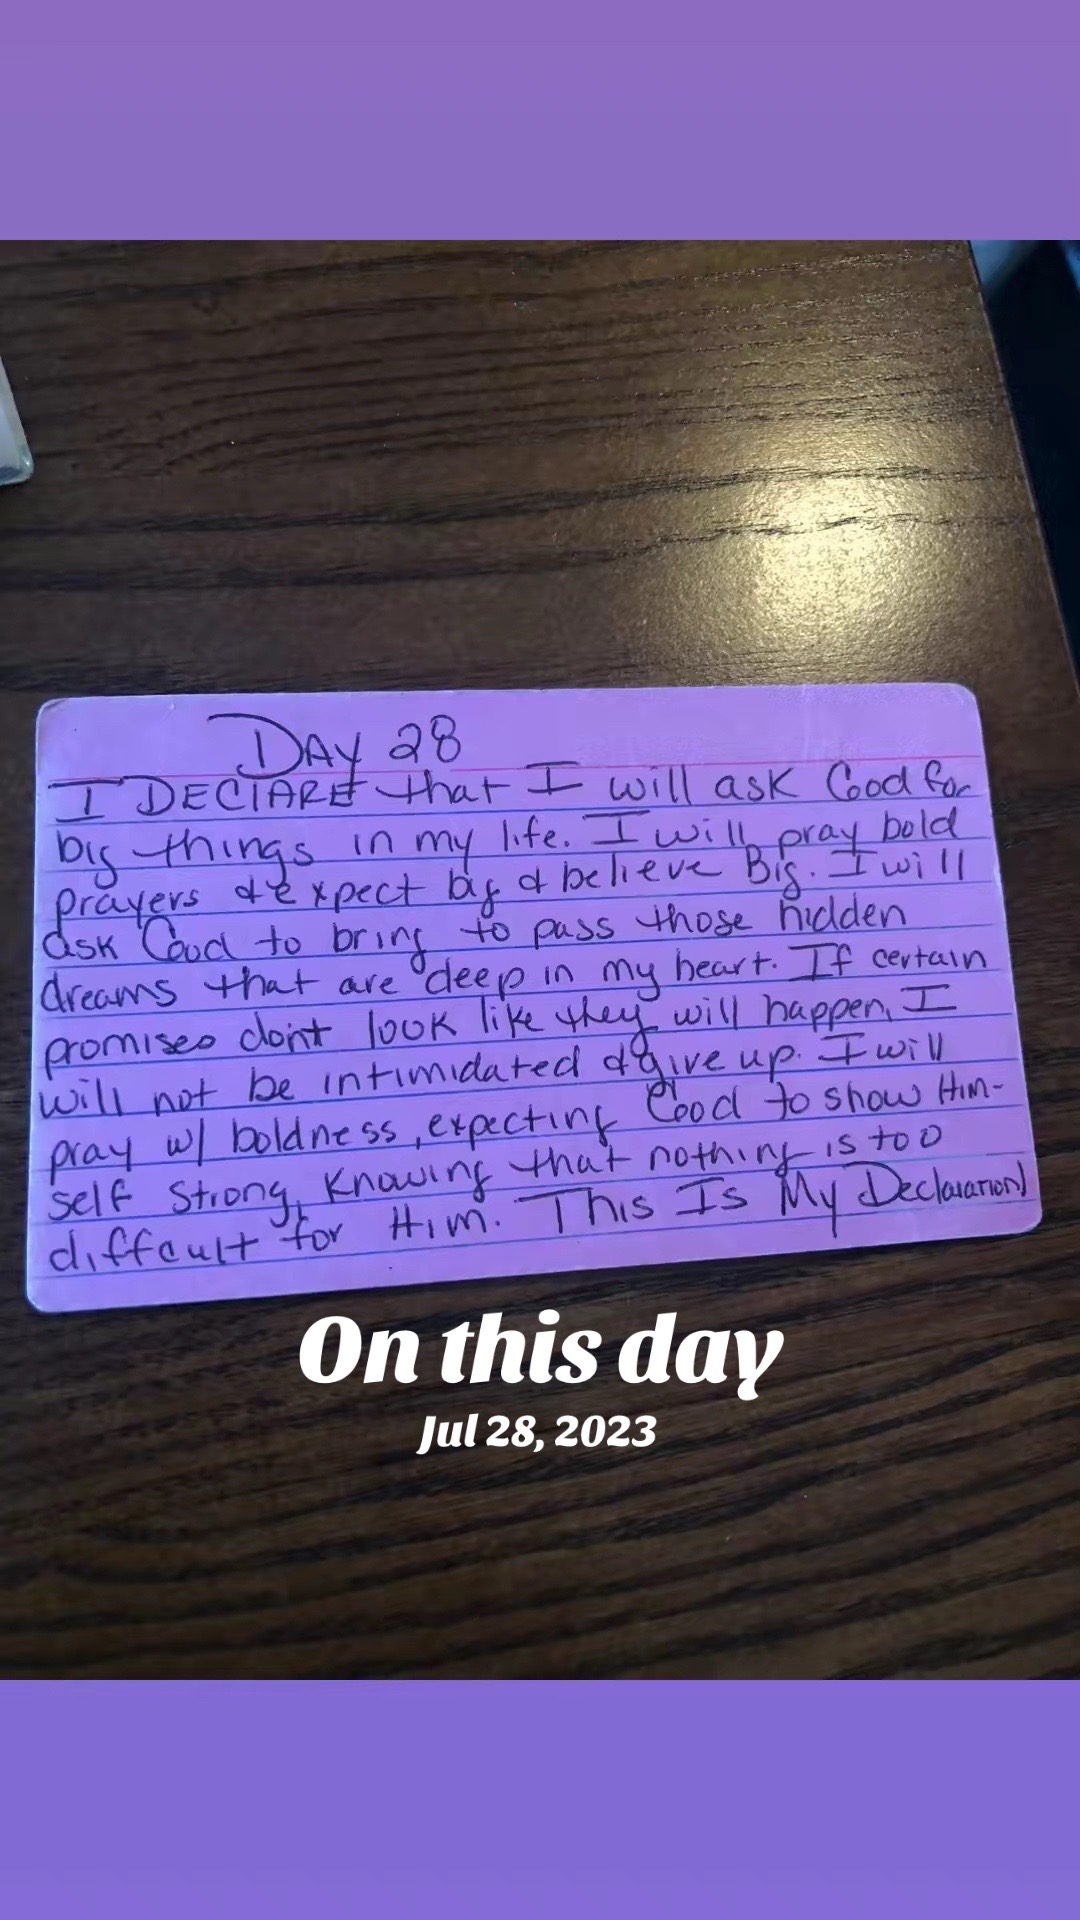 DAY 28
I DECLARE that I will ask God for
big things in my life. I will pray bold
prayers & expect big & believe Big. I will
ask God to bring to pass those hidden
dreams that are deep in my heart. If certain
promises don't look like they will happen, I
will not be intimidated & give up. I will
pray w/ boldness, expecting God to show Him-
self strong, knowing that nothing is too
difficult for Him. This Is My Declaration!
On this day
Jul 28, 2023